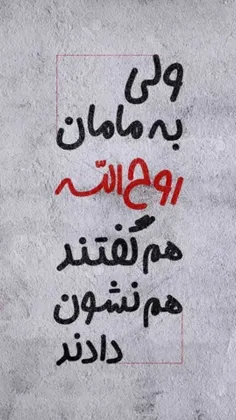 ولی
به مامان
روح‌الله
هم گفتند
هم نشون
دادند